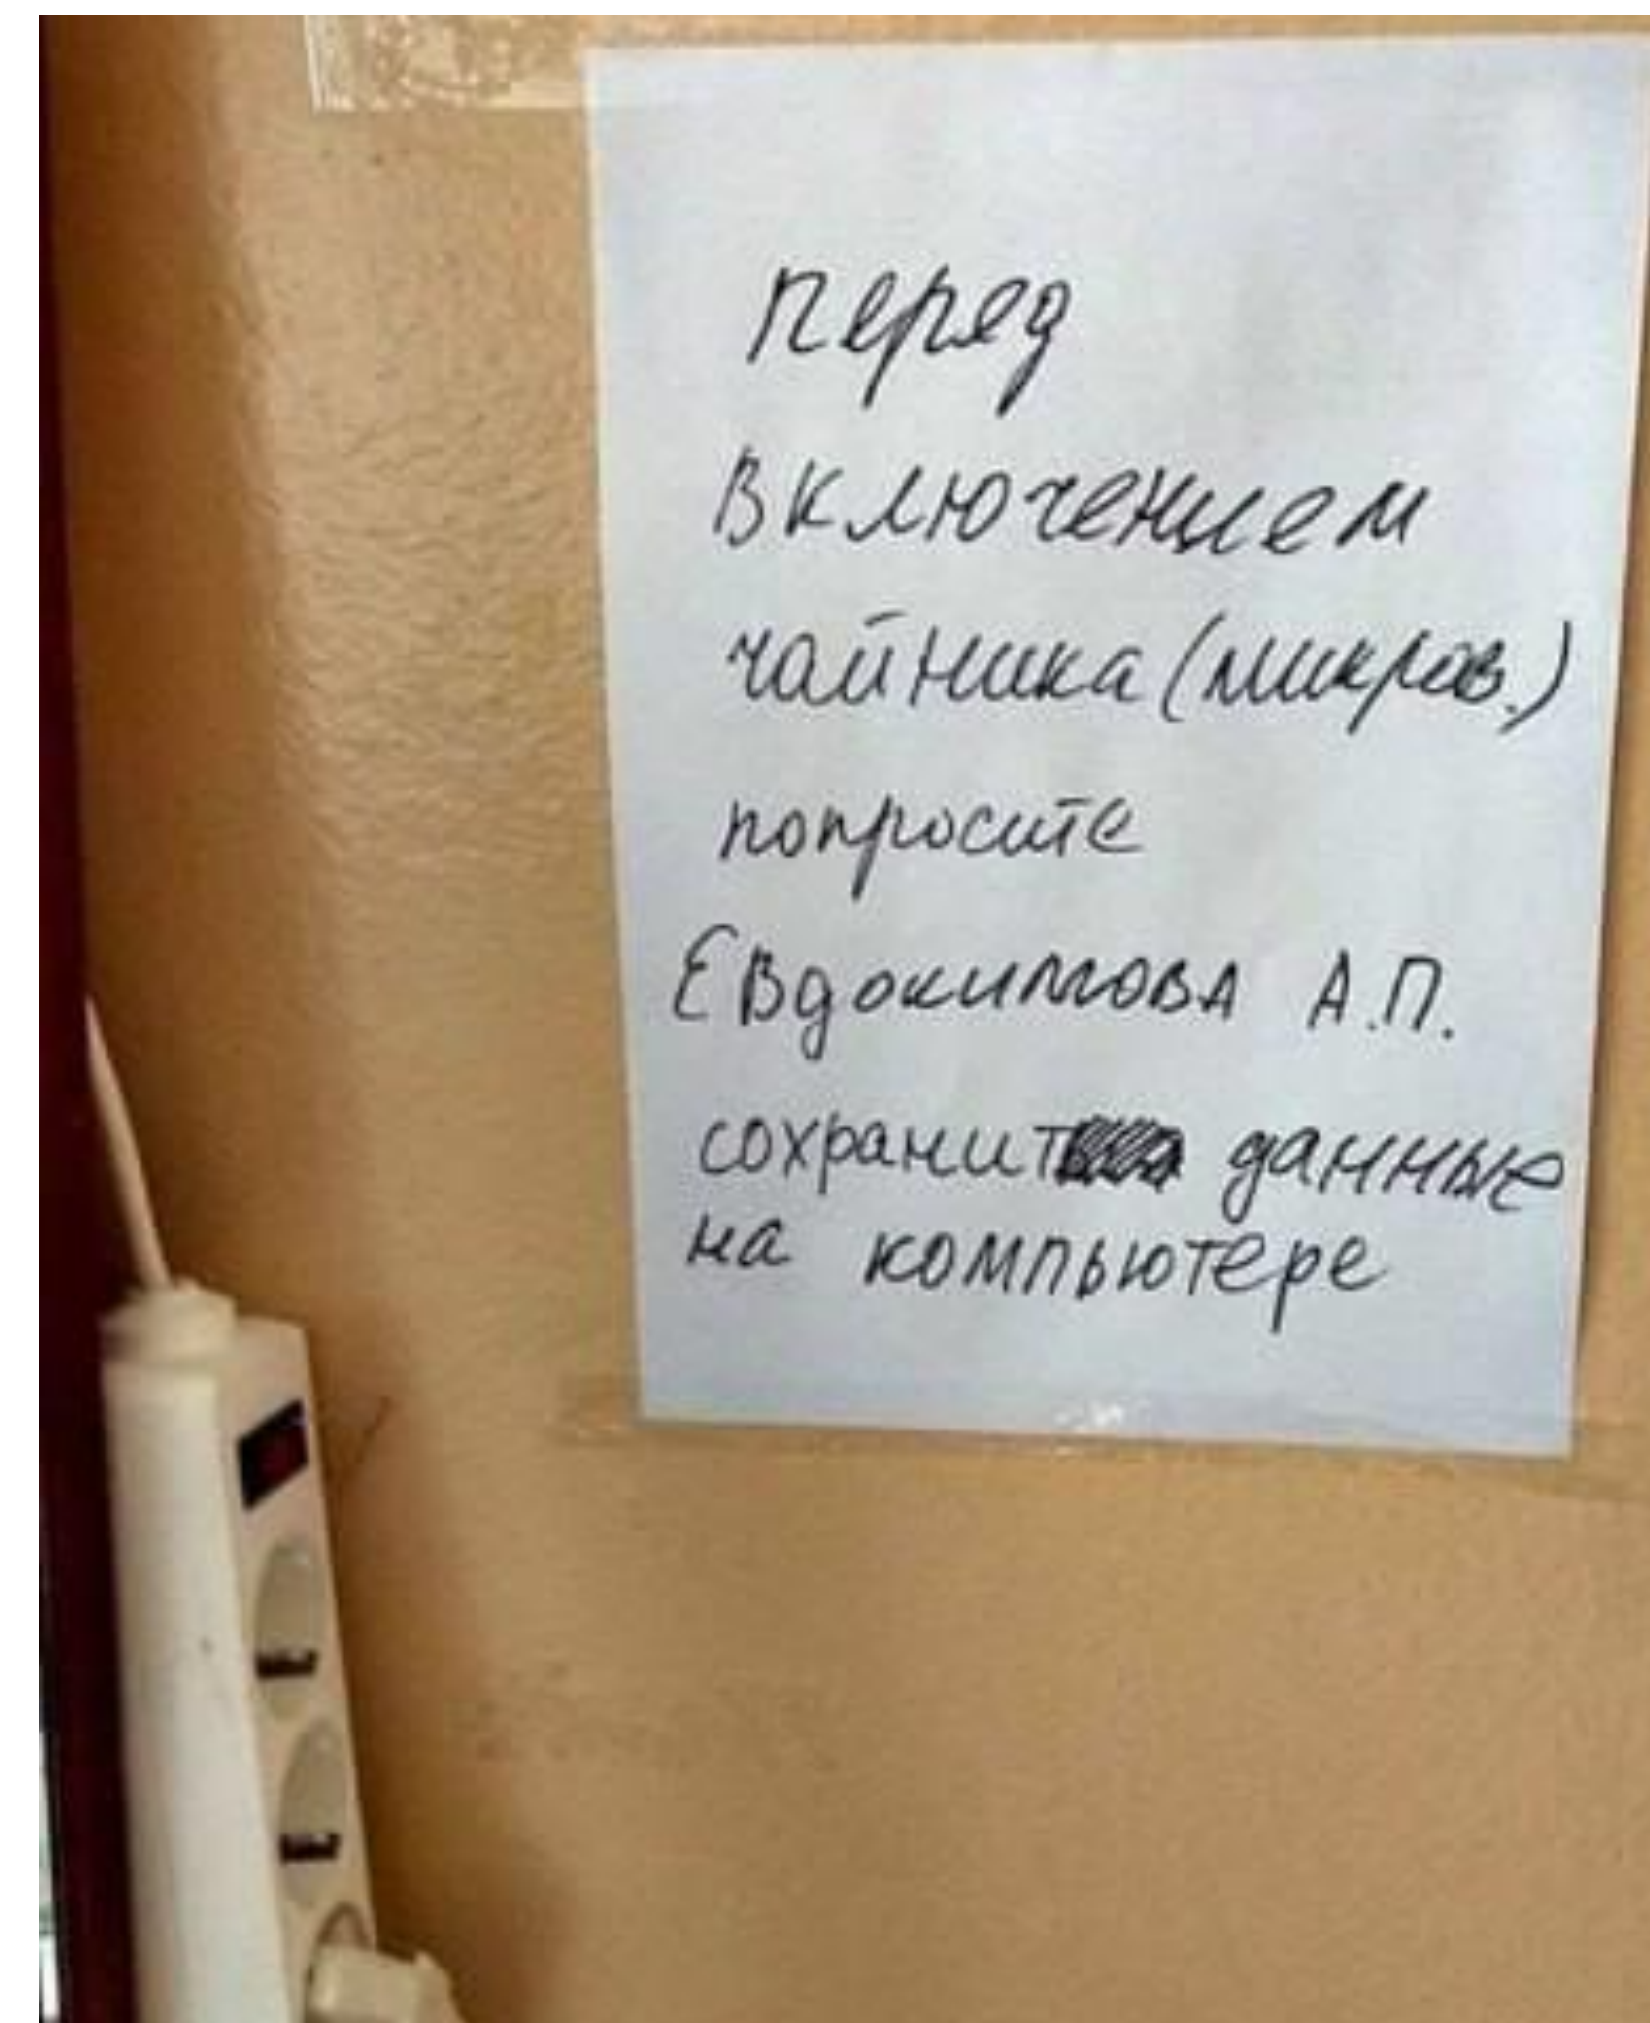 перед
включением
чайника (микров.)
попросите
Евдокимова А.П.
сохранит данные
на компьютере